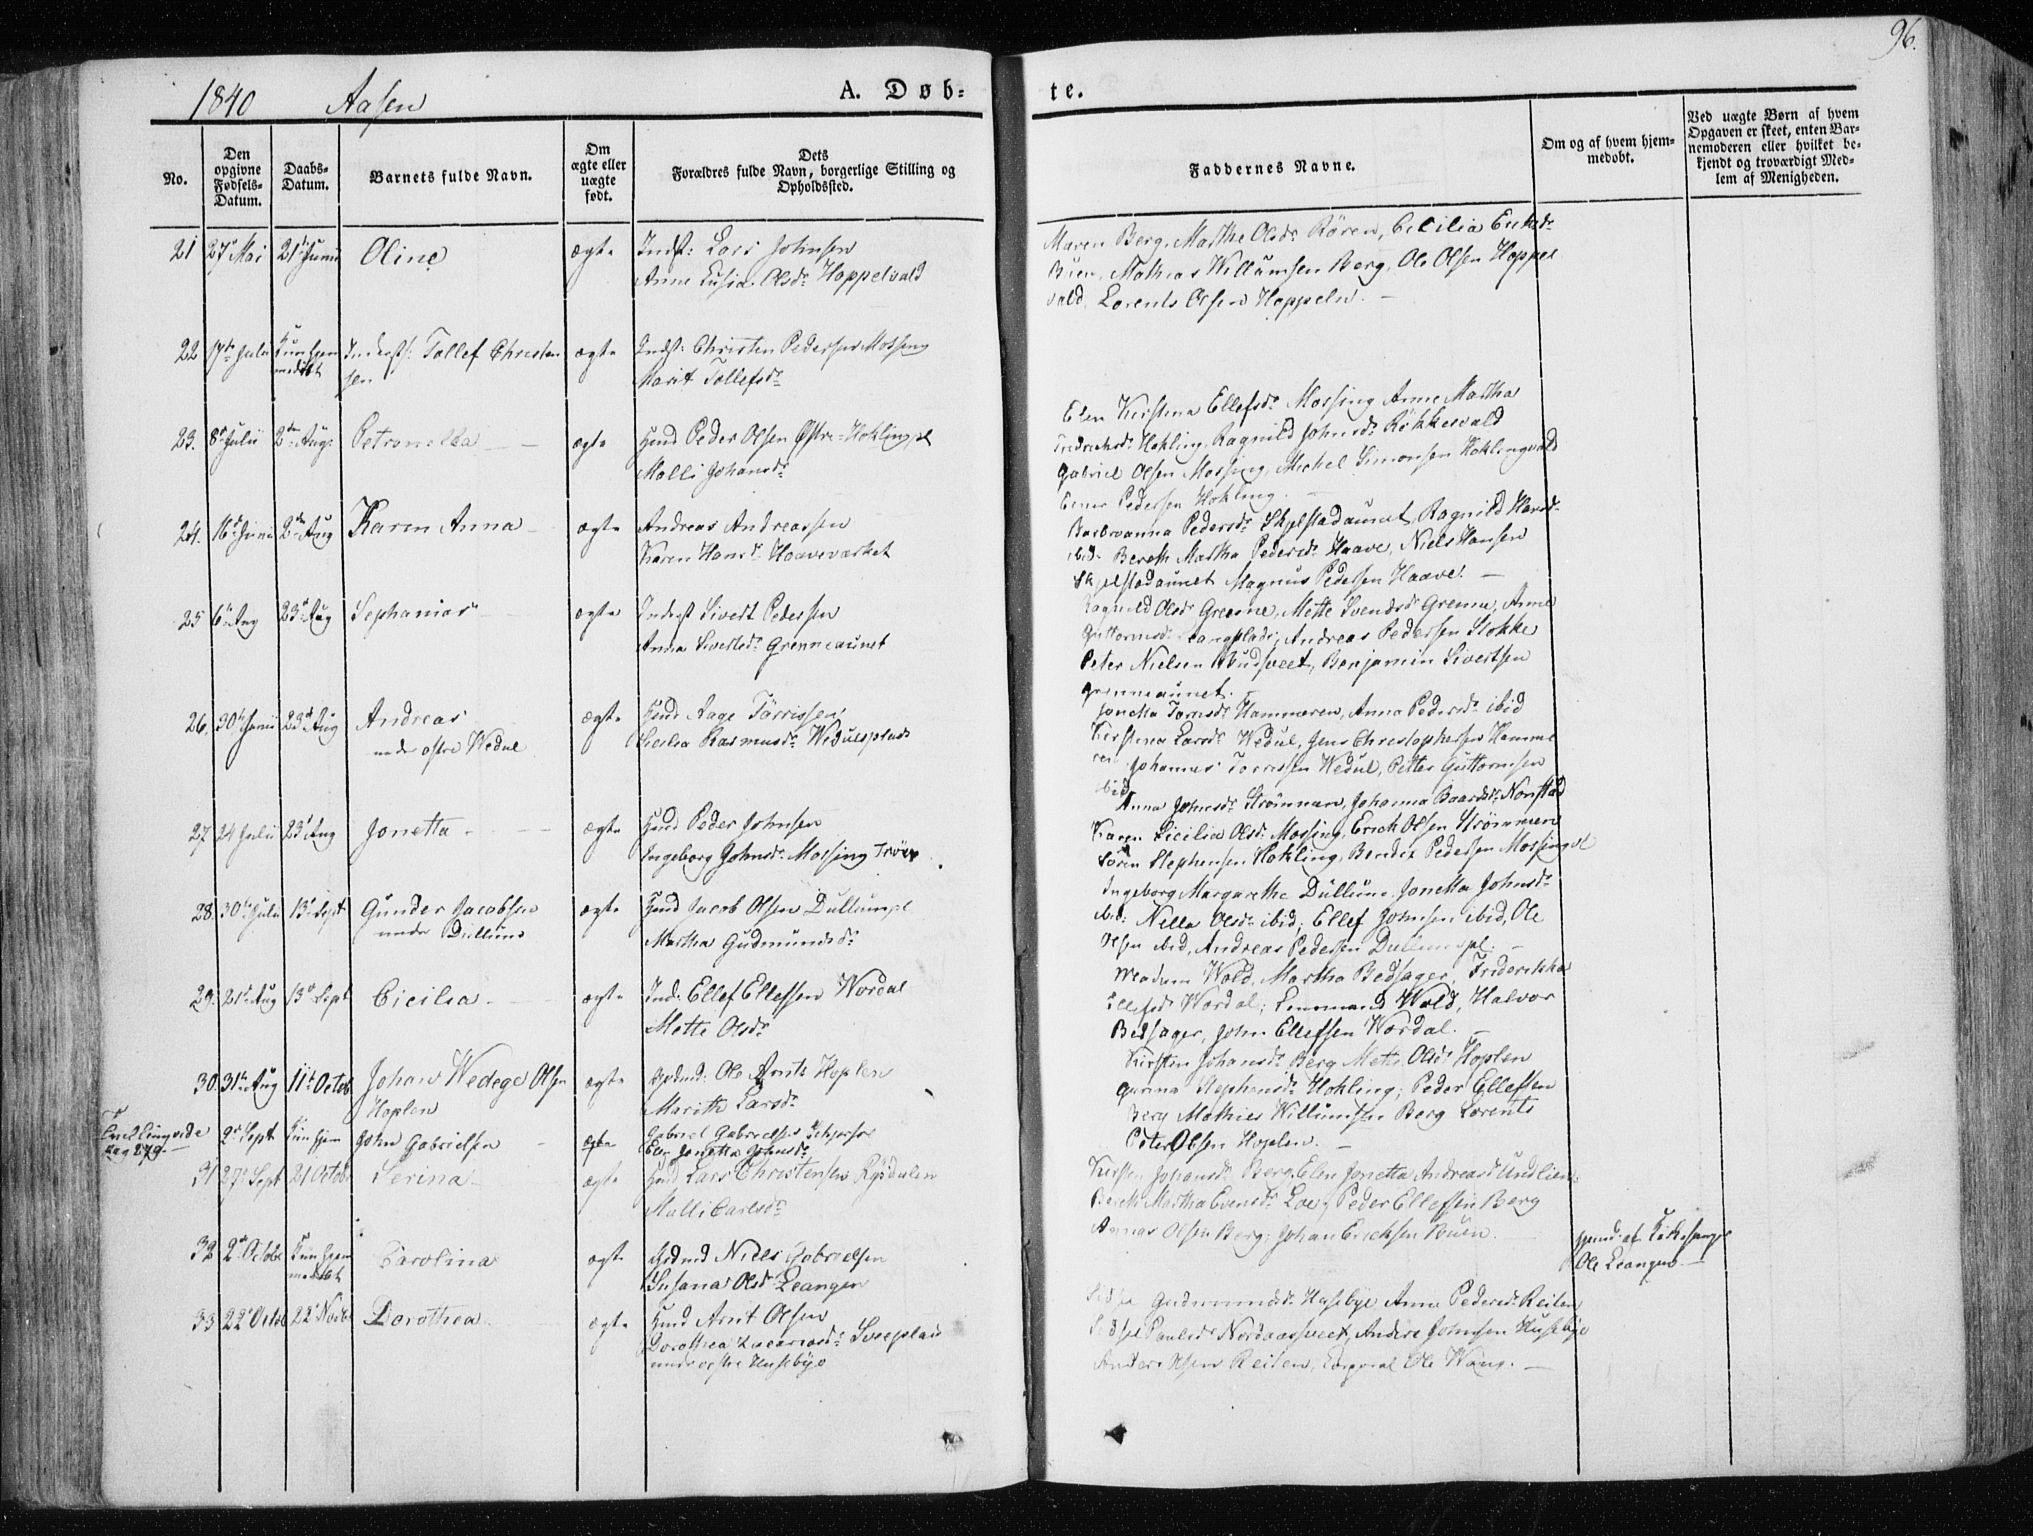 96.
1840 Aasen
A. Døb-
te.
No.
Den opgivne Fødsels-Datum.
Daabs-Datum.
Barnets fulde Navn.
Om ægte eller uægte født.
Dets Forældres fulde Navn, borgerlige Stilling og Opholdssted.
Faddernes Navne.
Om og af hvem hjem-medøbt.
Ved uægte Børn af hvem Opgaven er skeet, enten Bar-nemoderen eller hvilket be-kjendt og troværdigt Med-lem af Menigheden.
21 27 Mai 21 Junii Oline ægte Indst: Lars Johnsen
Anne Lusia Olsdr Hoppelvald
Maren Berg, Marthe Olsdr Rören, Cicilia Ericksdr
Buen, Mathias Willumsen Berg, Ole Olsen Hoppel
vald, Lorents Olsen Hoppeln. —
22 17de Julii Kun hjem
medøbt Inderst: Tollef Christen
sen ægte Indst: Christen Pedersen Mossing
Marit Tollefsdr
23. 8de Julii 2den Aug: Petronella ægte Huusmd Peder Olsen Østre-Hoklingpl
Malli Johansdr
Elen Kirstina Ellefsdr Mossing Anne Martha
Fredriksdr Hokling, Ragnild Johnsdr Röhkesvald
Gabriel Olsen Mossing, Michel Simonsen Hoklingvald
Einer Pedersen Hokling. —
24. 16de Junii 2den Aug Karen Anna ægte Andreas Andreassen
Karen Hansdr Haaveværket
Barbroanna Pedersdr Skjelstadaunet, Ragnild Hansdr
ibid. Bereth Martha Pedersdr Haave, Niels Hansen
Skjelstadaunet Magnus Pedersen Haave. —
25 6te Aug 23de Aug Sephanias ægte Inderst Sivert Pedersen
Anna Sivertsdr Grenneaunet
Ragnild Olsdr Grenne, Mette Svendsdr Grenne, Anne
Guttormsdr Langplads, Andreas Pedersen Stokke
Peter Nielsen Rudsveet, Benjamin Sivertsen
Grenneaunet.
26. 30te Junii 23de Aug Andreas
under østre Wedul ægte Huusmd Aage Törrissen
Cicilia Rasmusdr Wedulsplads
Jonetta Torrisdr Hammeren, Anna Pedersdr ibid
Kirstina Larsdr Wedul, Jens Christophersen Hamme
ren Johannes Torrissen Wedul, Petter Guttormsen
ibid
27. 24 Julii 23de Aug Jonetta ægte Huusmd Peder Johnsen
Ingeborg Johnsdr Mossing
Anna Johnsdr Strömmen, Johanna Baardsdr Norstad
Karen Cicilia Olsdr Mossing, Erich Olsen Strömmen
Sören Stephensen Hokling, Bendix Pedersen Mossingpl
28. 30te Julii 13de Sept Gunder Jacobsen
under Dullum ægte Huusmd Jacob Olsen Dullumpl
Martha Gudmundsdr
Ingeborg Margarethe Dullum, Jonetta Johnsdr
ibid: Nella Olsdr ibid; Ellef Johnsen ibid, Ole
Olsen ibid, Andreas Pedersen Dullumspl. —
29. 21de Aug 13de Sept Cicilia ægte Ind: Ellef Ellefsen Wordal
Mette Olsdr
Madam Wold, Martha Bedsager, Friderikka
Ellefsdr Wordal; Wold, Halvor
Bedsager, John Ellefsen Wordal. —
30. 31te Aug 11te Octob Johan Wedege Olsen
Hoplen ægte Gdmd: Ole Arntz Hoplen
Marith Larsdr
Kirstin Johansdr Berg Mette Olsdr Hoplen
Gurina Stephensdr Hokling; Peder Ellefsen
Berg Mathies Willumsen Berg Lorents
Peter Olsen Hoplen. —
pag 279. 2de Sept Kun hjem John Gabrielsen ægte Gabriel Gabrielsen
Jonetta Johnsdr
31 27de Sept 21 Octobr Serina ægte Huusmd Lars Christensen Rysdalen
Malli Carlsdr
Kirsten Johansdr Berg, Elen Jonetta Andreasdr Undlien
Bereth Martha Evensdr Loe; Peder Ellefsen Berg
Annas Olsen Berg; Johan Erichsen Buen.
32 2de Octobr Kun hjem
medøbt Carolina ægte Gdmd Niels Gabrielsen
Susanna Olsdr Leangen
Ole Leangen. —
33 22de Octbr 22de Novbr Dorothea ægte Huusmd Arnt Olsen
Dorothea Zacariasdr Sveeplads
under østre Husebÿe
Gudmundsdr Husebÿe Anne Pedersdr Reiten
Paulsdr Nordaassveet, Anders Johnsen Husebÿe
Anders Olsen Reiten, Corporal Ole Wang. —